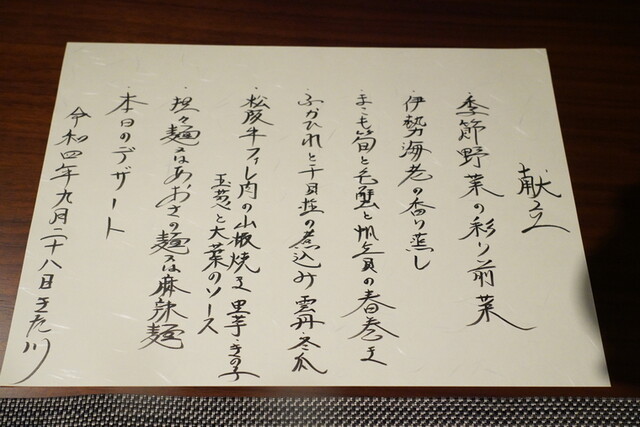 献立
・季節野菜の彩り前菜
・伊勢海老の香り蒸し
・まこも筍と毛蟹と帆立貝の春巻き
・ふかひれと干貝柱の煮込み 雲丹・冬瓜
・松阪牛フィレ肉の山椒焼き 里芋・きの子
玉葱と大葉のソース
・担々麺又はあおさの麺又は麻辣麺
・本日のデザート
令和四年九月二十八日
川